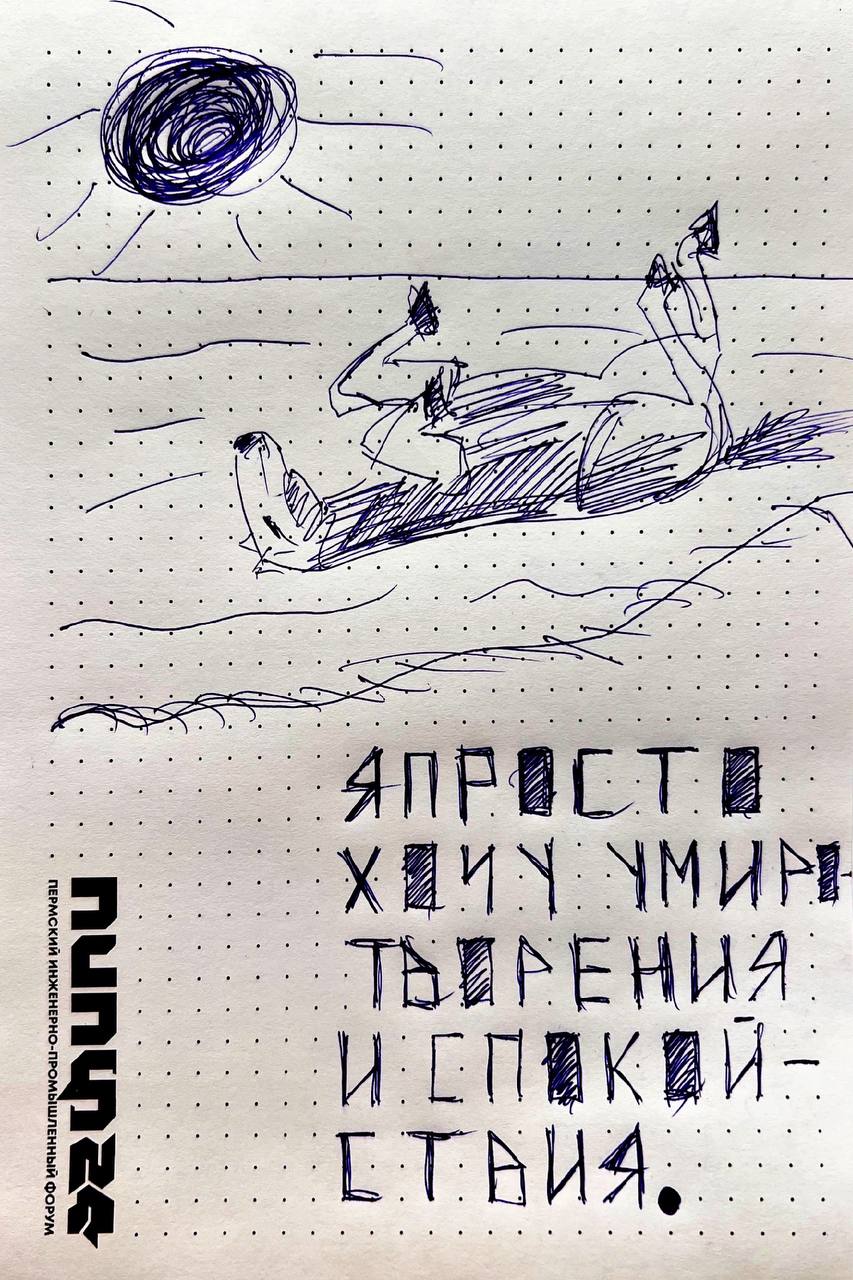 Я ПРОСТО
ХОЧУ УМИРО-
ТВОРЕНИЯ
И СПОКОЙ-
СТВИЯ.
ПЕРМСКИЙ ИНЖЕНЕРНО-ПРОМЫШЛЕННЫЙ ФОРУМ